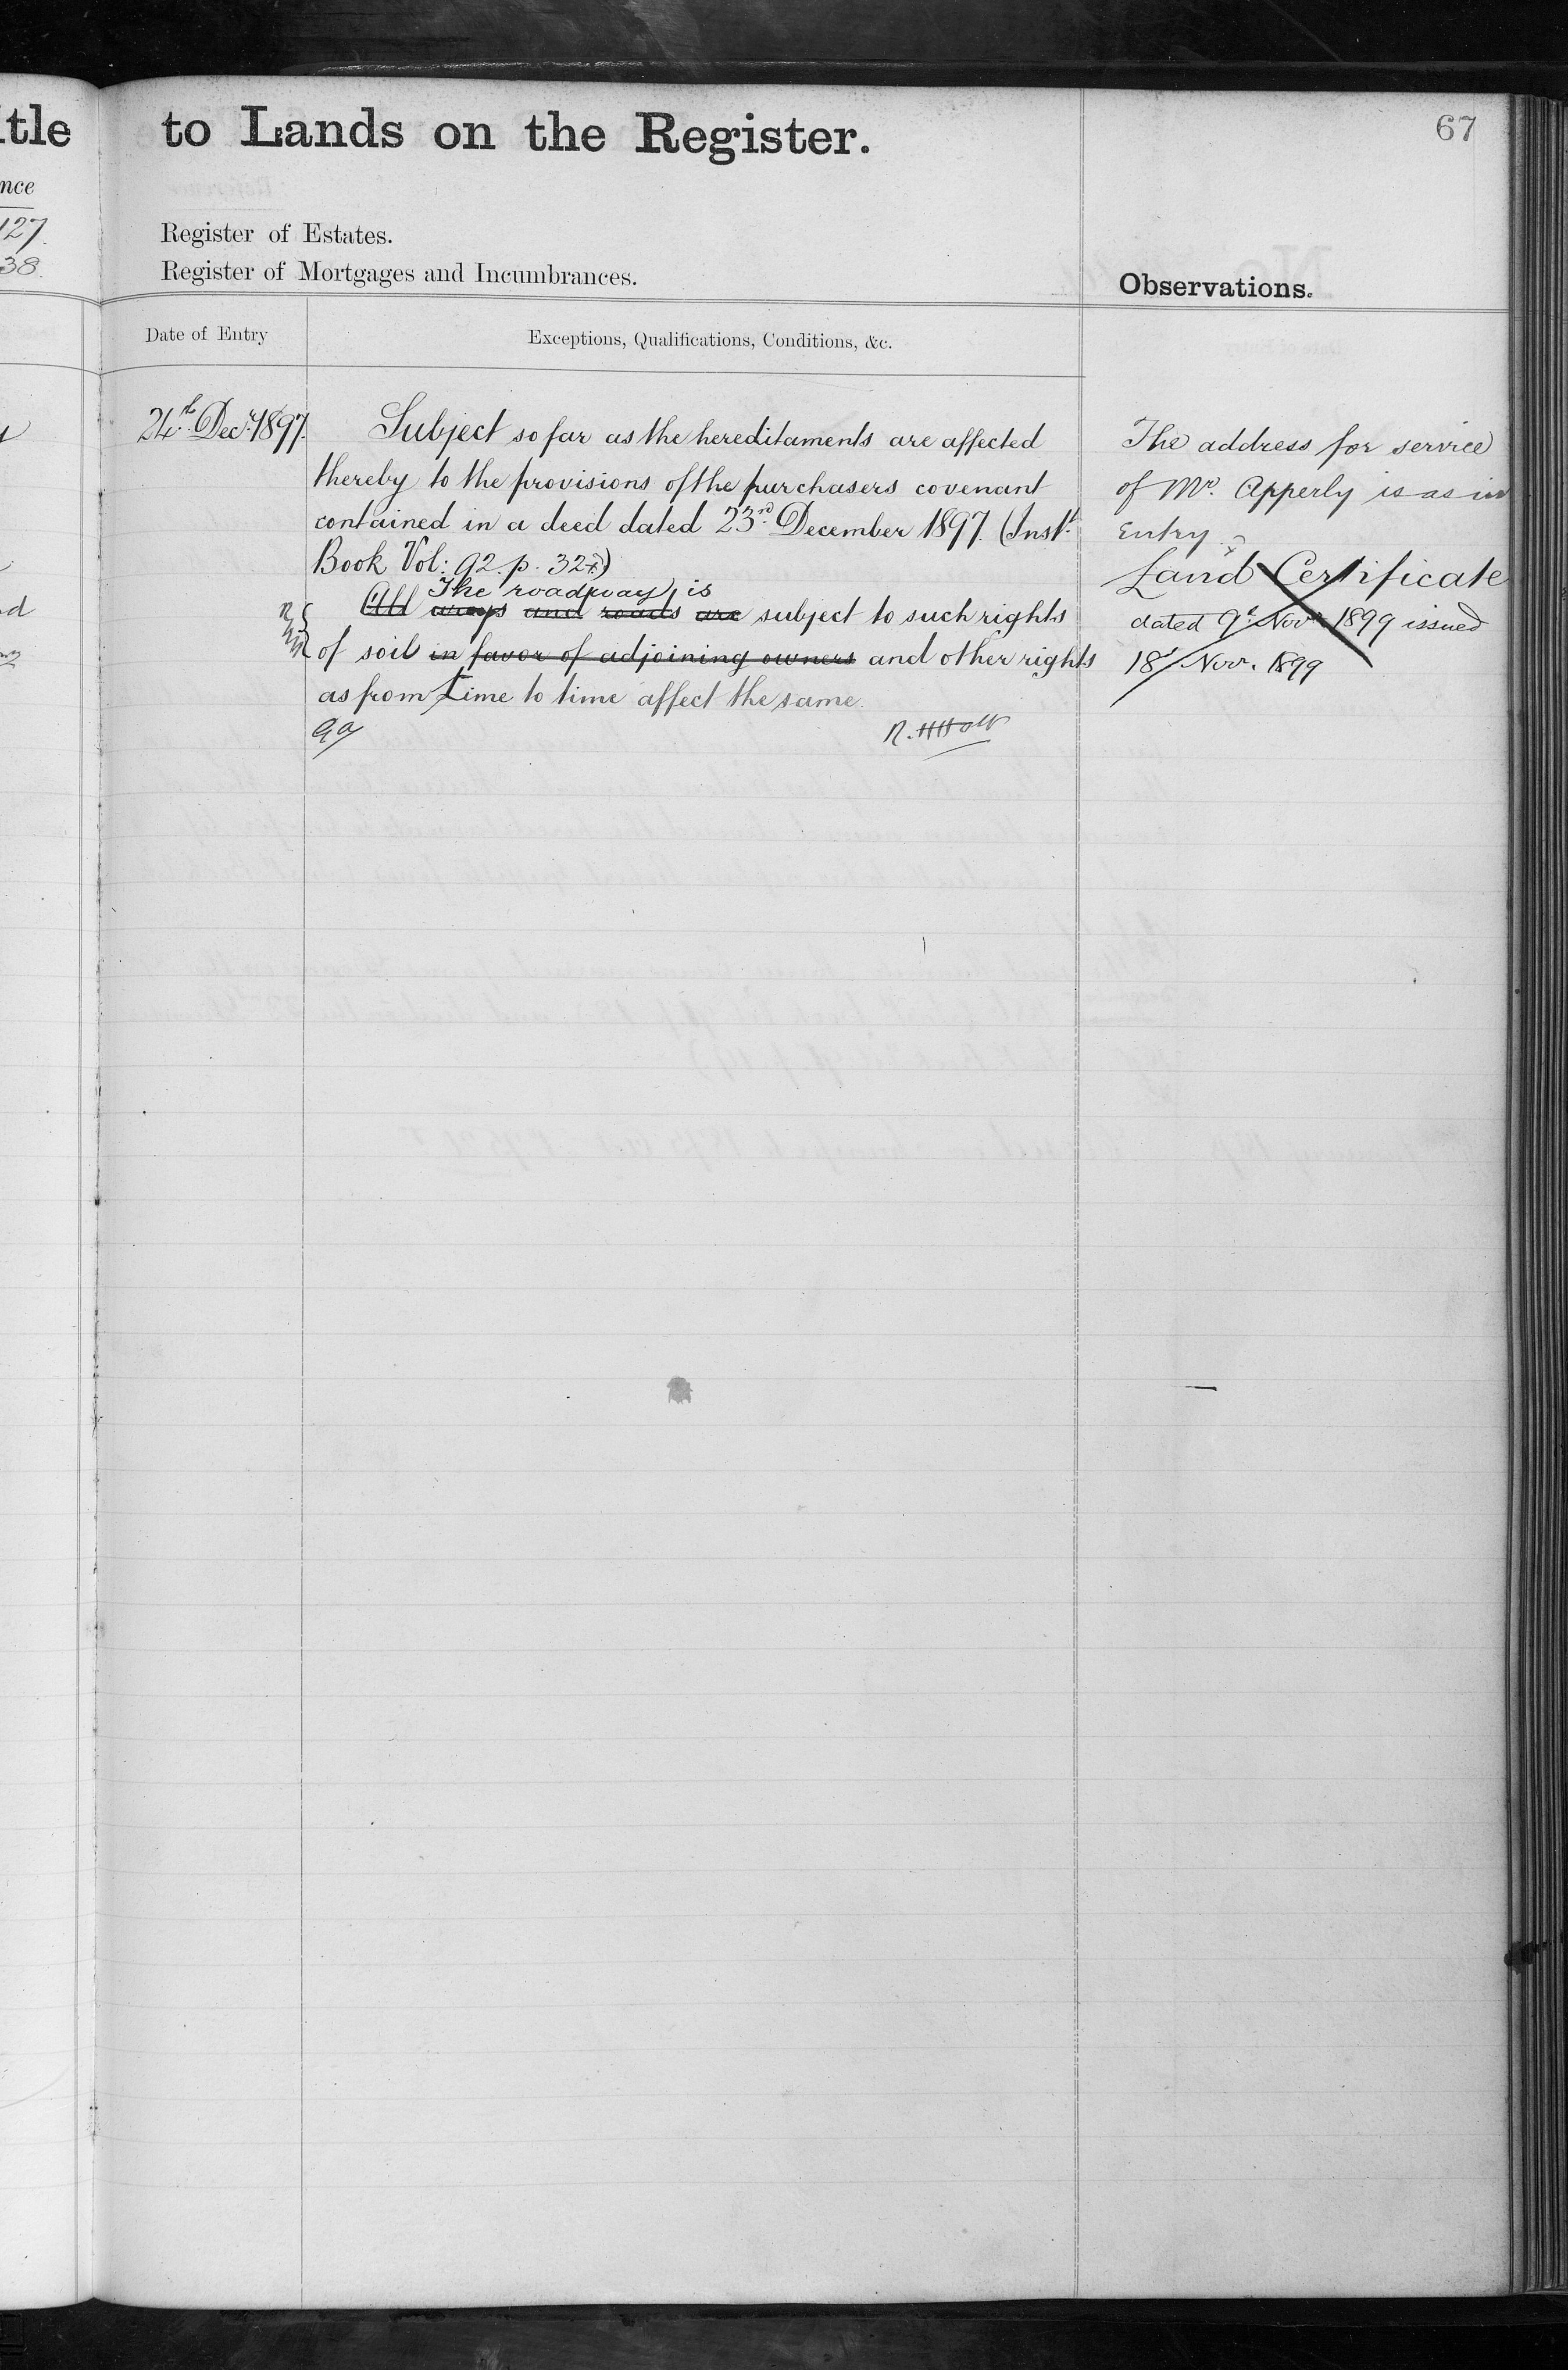 tle to Lands on the Register. 67
nce
127.
38.
Register of Estates.
Register of Mortgages and Incumbrances.
Observations.
Date of Entry
Exceptions, Qualifications, Conditions, &c.
24th Decr 1897.
Subject so far as the hereditaments are affected
thereby to the provisions of the purchasers covenant
contained in a deed dated 23rd December 1897. (Inst.
Book Vol: 92. p. 327)
The roadway is
All ways and roads are subject to such rights
of soil in favor of adjoining owners and other rights
as from time to time affect the same.
The address for service
of Mr. Apperly is as in
Entry
Land Certificate
dated 9t Novr 1899 issued
18t Nov. 1899